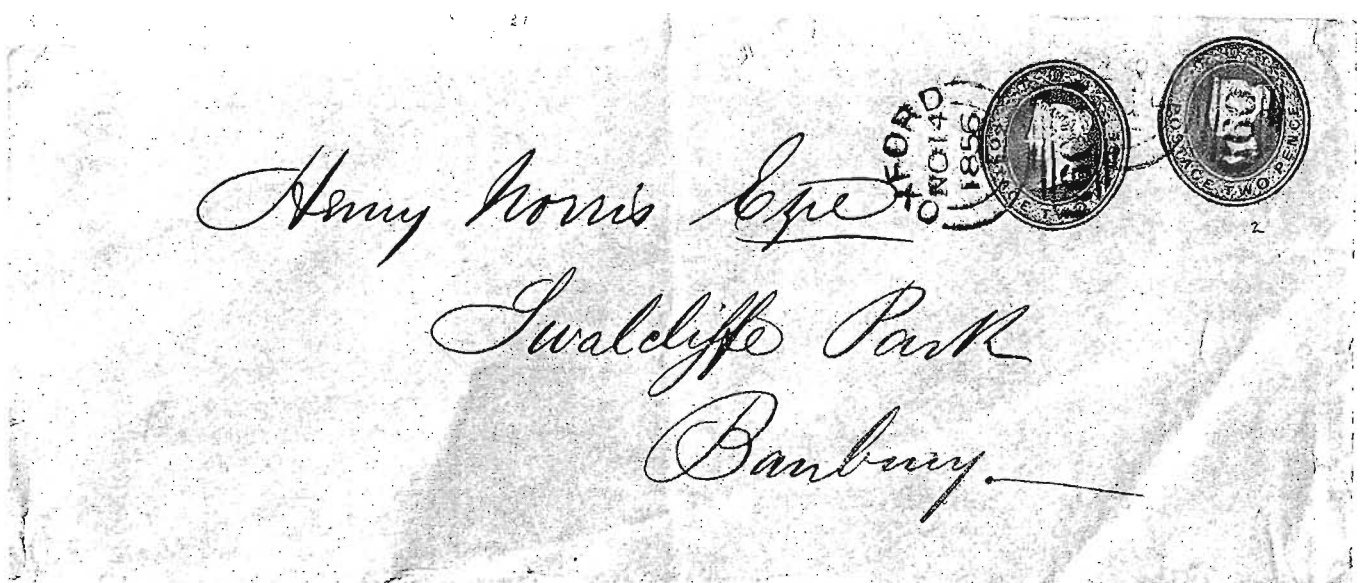 21
OXFORD
NO 14
1856
POSTAGE TWO PENCE
POSTAGE TWO PENCE
2
Henry Norris Esqe
Swalcliffe Park
Banbury.